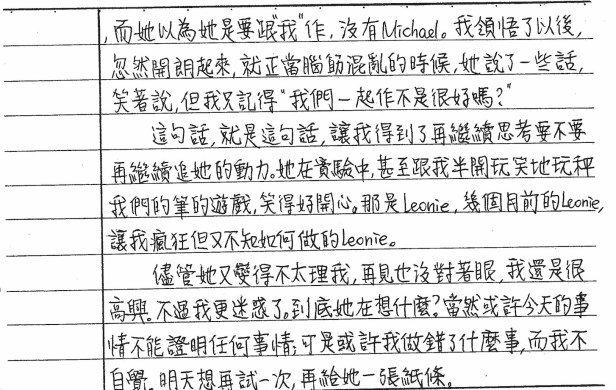 ,而她以為她是要跟"我"作,沒有Michael。我領悟了以後,
忽然開朗起來,就正當腦筋混亂的時候,她說了一些話,
笑著說,但我只記得"我們一起作不是很好嗎?"
這句話,就是這句話,讓我得到了再繼續思考要不要
再繼續追她的動力。她在實驗中,甚至跟我半開玩笑地玩秤
我們的筆的遊戲,笑得好開心。那是Leonie,幾個月前的Leonie,
讓我瘋狂但又不知如何做的Leonie。
儘管她又變得不太理我,再見也沒對著眼,我還是很
高興。不過我更迷惑了。到底她在想什麼?當然或許今天的事
情不能證明任何事情;可是或許我做錯了什麼事,而我不
自覺。明天想再試一次,再給她一張紙條。